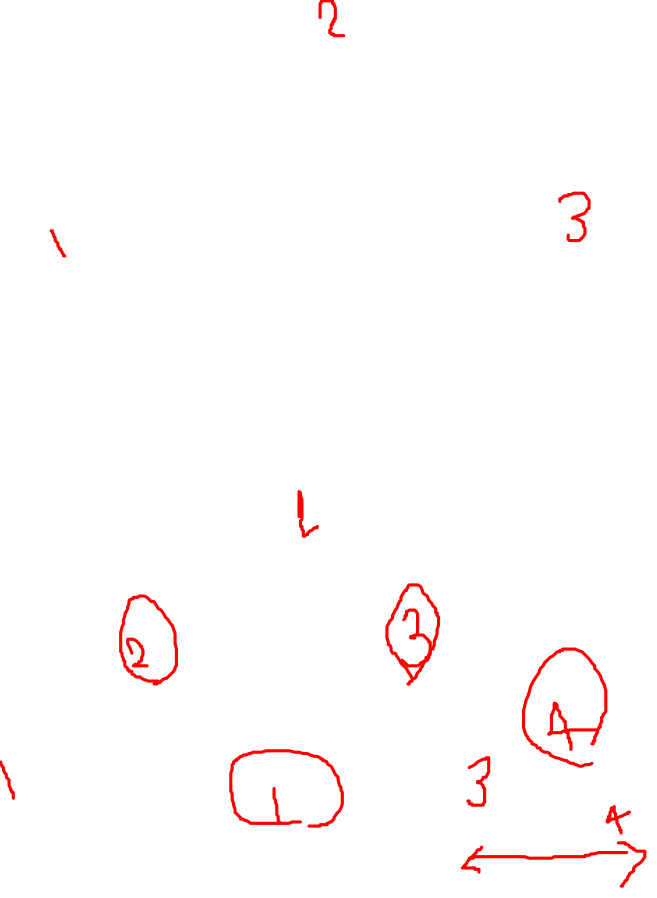 2
3
1
1
2
3
4
1
1
3
4